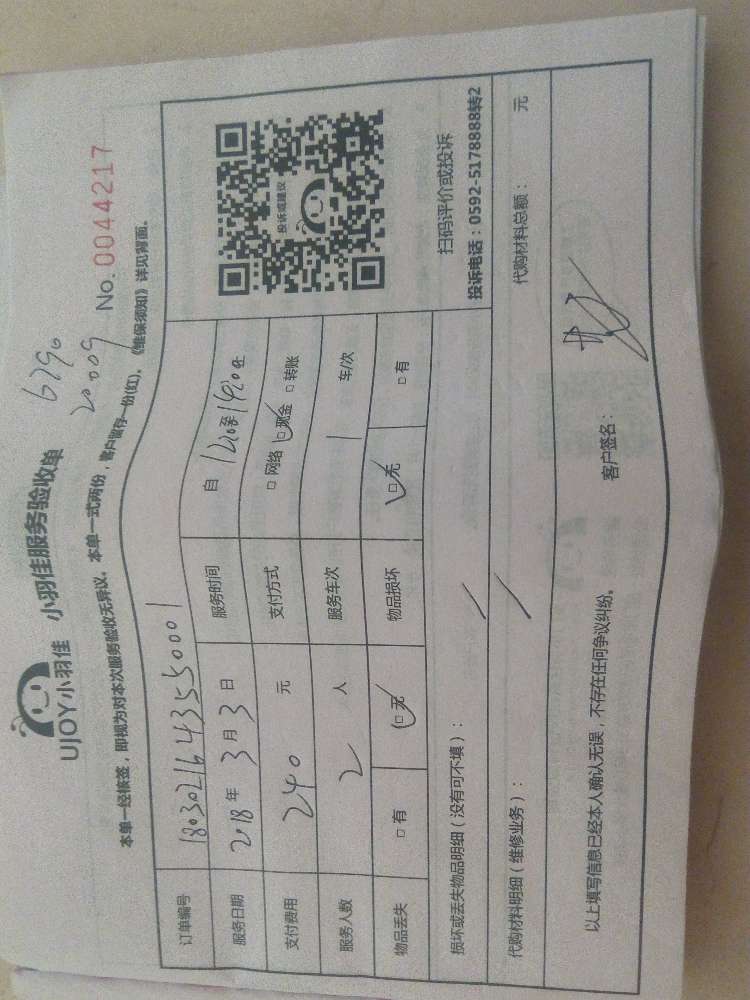 UJOY小羽佳 小羽佳服务验收单
6790
20009
No.0044217
本单一经核签，即视为对本次服务验收无异议。本单一式两份，客户留存一份(红)。《维保须知》详见背面。
订单编号 1803021643550001
服务日期 2018年3月3日 服务时间 自 至
支付费用 240元 支付方式 □网络 □现金 □转账
服务人数 2人 服务车次 1 车/次
物品丢失 □有 □无 物品损坏 □无 □有
投诉或建议
扫码评价或投诉
投诉电话：0592-5178888转2
损坏或丢失物品明细（没有可不填）：
代购材料明细（维修业务）： 代购材料总额： 元
以上填写信息已经本人确认无误，不存在任何争议纠纷。
客户签名：